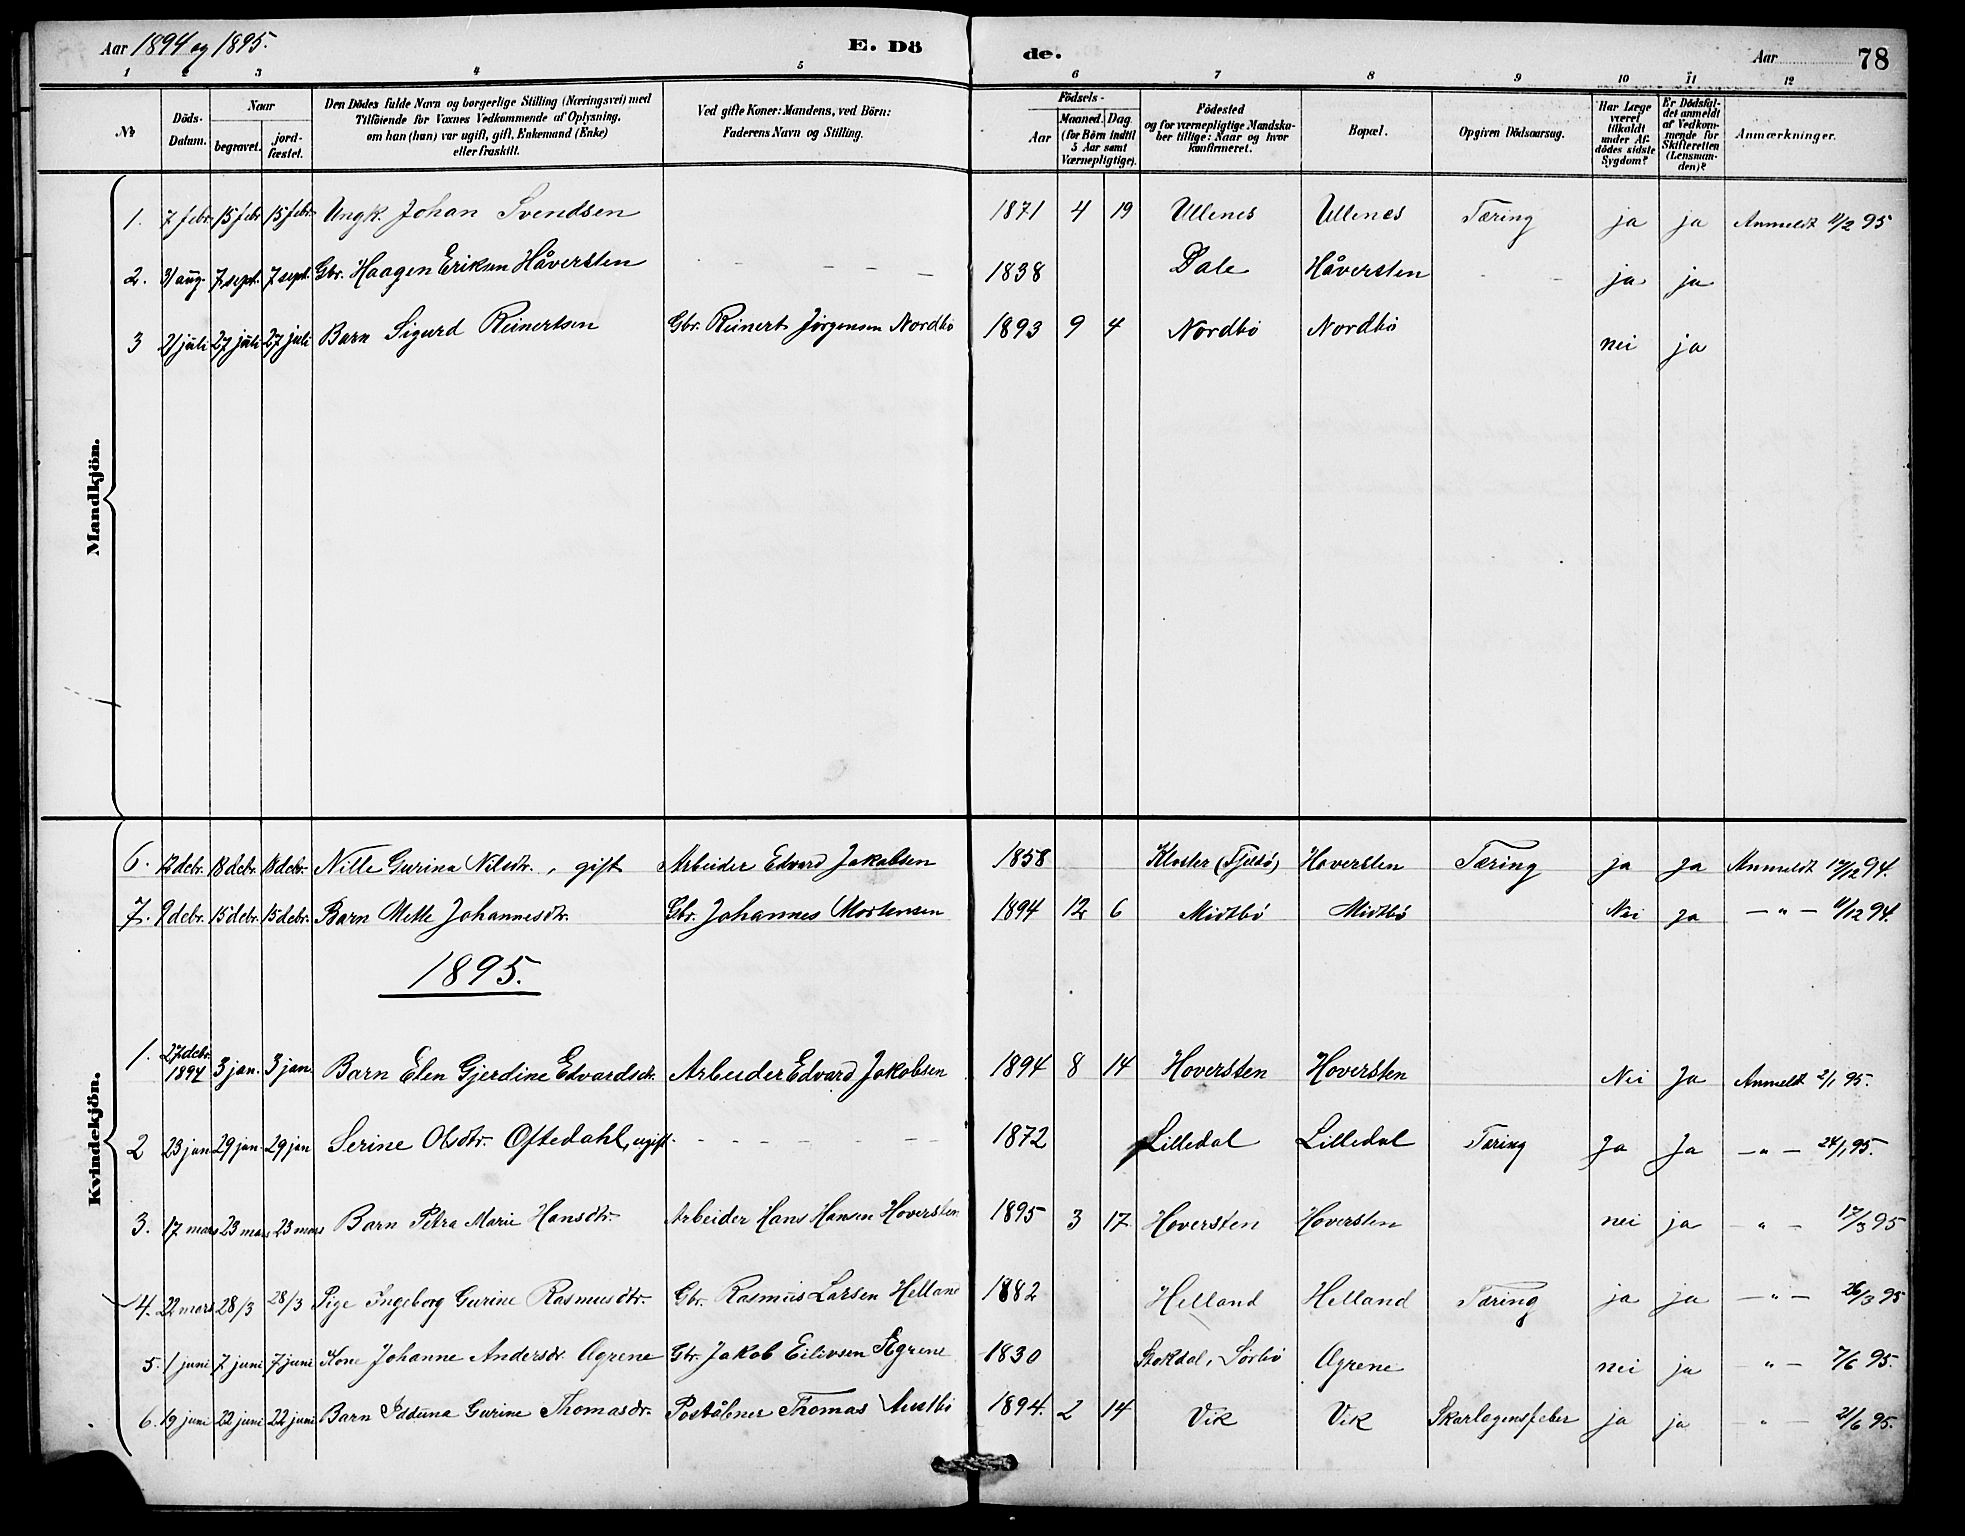 Aar 1894 og 1895. E. Dö de. Aar 78
1 2 3 4 5 6 7 8 9 10 11 12
No Döds-Datum. Naar begravet. jord-fæstet. Den Dödes fulde Navn og borgerlige Stilling (Næringsvei) med Tilföiende for Voxnes Vedkommende af Oplysning, om han (hun) var ugift, gift, Enkemand (Enke) eller fraskilt. Ved gifte Koner: Mandens, ved Börn: Faderens Navn og Stilling. Födsels- Aar Maaned. Dag. (for Börn indtil 5 Aar samt Værnepligtige). Födested og for værnepligtige Mandskaber tillige: Naar og hvor konfirmeret. Bopæl. Opgiven Dödsaarsag. Har Læge været tilkaldt under Afdödes sidste Sygdom? Er Dödsfaldet anmeldt af Vedkommende for Skifteretten (Lensmanden)? Anmærkninger.
Mandkjön.
1. 7 febr. 15 febr 15 febr. Ungk. Johan Svendsen 1871 4 19 Ullenes Ullenes Tæring ja ja Anmeldt 11/2 95
2. 31 aug. 7 sept. 7 sept. Gbr. Haagen Eriksen Håversten - - - - 1838 Dale Håversten - - ja ja
3 21 juli 27 juli 27 juli Barn Sigurd Reinertsen Gbr. Reinert Jørgensen Nordbö 1893 9 4 Nordbö Nordbö nei ja
Kvindekjön.
6. 12 debr. 18 debr. 18 debr. Nille Gurina Nilsdtr., gift Arbeider Edvard Jakobsen 1858 Kloster (Fjelsö) Hoversten Tæring ja ja Anmeldt 17/12 94.
7. 9 debr. 15 debr. 15 debr. Barn Mette Johannesdtr. Gbr. Johannes Mortensen 1894 12 6 Midtbö Midtbö Nei ja — " — 11/12 94.
1895.
1. 27 debr. 1894 3 jan. 3 jan. Barn Elen Gjerdine Edvardsdr. Arbeider Edvard Jakobsen 1894 8 14 Hoversten Hoversten Nei Ja Anmeldt 2/1 95.
2 23 jan 29 jan. 29 jan Serine Olsdtr. Oftedahl, ugift. - - - - 1872 Lilledal Lilledal Tæring Ja Ja — " — 24/1 95.
3. 17 mars 23 mars 23 mars Barn Petra Marie Hansdtr. Arbeider Hans Hansen Hoversten. 1895 3 17. Hoversten Hoversten nei ja — " — 17/3 95
4. 22 mars 28/3 28/3 Pige Ingeborg Gurine Rasmusdtr. Gbr. Rasmus Larsen Helland 1882 Helland Helland Tæring ja ja — " — 26/3 95
5. 1 juni 7 juni 7 juni Kone Johanne Andersdr. Ögrene Gbr. Jakob Eilivsen Ögrene 1830 Stokdal, Sörbö Ögrene nei ja — " — 7/6 95.
6. 19 juni 22 juni 22 juni Barn Idduna Gurine Thomasdr. Poståbner Thomas Austbö 1894. 2 14 Vik Vik Skarlagensfeber ja ja — " — 21/6 95.